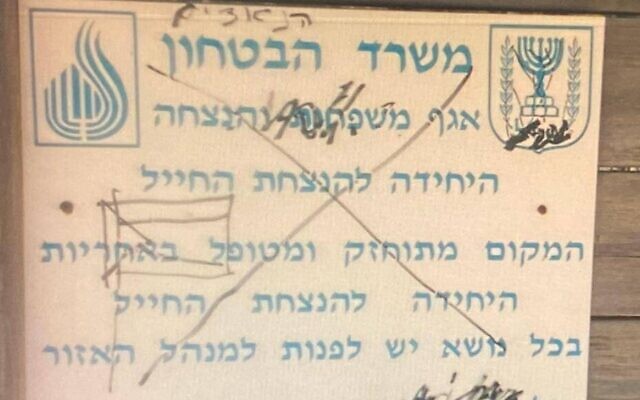 הנאצים
משרד הבטחון
אגף משפחות והנצחה
היחידה להנצחת החייל
המקום מתוחזק ומטופל באחריות
היחידה להנצחת החייל
בכל נושא יש לפנות למנהל האזור